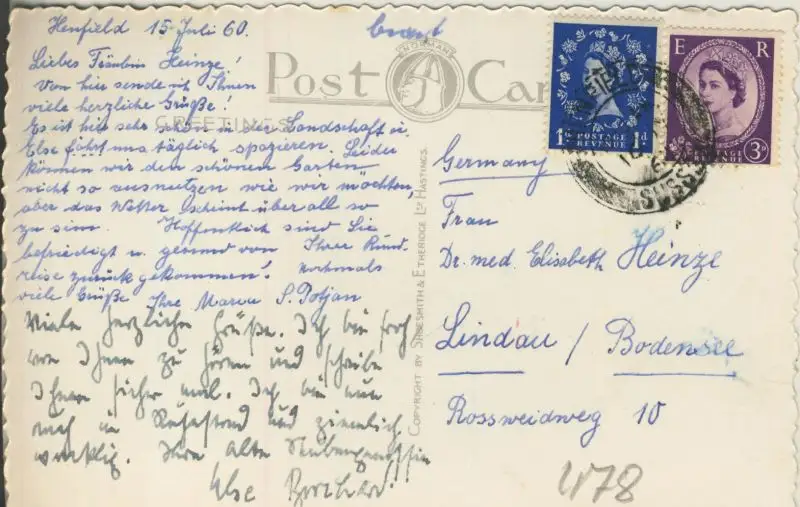 Henfield 15. Juli 60.
Liebes Fräulein Heinze!
Von hier sende ich Ihnen
viele herzliche Grüße!
Es ist hier sehr schön in der Landschaft u.
Else fährt uns täglich spazieren. Leider
können wir den schönen Garten
nicht so ausnutzen wie wir möchten,
aber das Wetter scheint überall so
zu sein. Hoffentlich sind Sie
befriedigt u. gesund von Ihrer Rund-
reise zurückgekommen! Nochmals
viele Grüße Ihre S.
Viele herzliche Grüße. Ich bin froh
von Ihnen zu hören und schreibe
Ihnen sicher mal. Ich bin nun
auch in Ruhestand und ziemlich
wacklig. Ihre alte
Else
POST CARD
NORMAN
GREETINGS
COPYRIGHT BY SHOESMITH & ETHERIDGE LTD HASTINGS.
1d POSTAGE REVENUE 1d
E R
POSTAGE REVENUE 3D
SUSSEX
Germany
Frau
Dr. med. Elisabeth Heinze
Lindau / Bodensee
Rossweidweg 10
4178